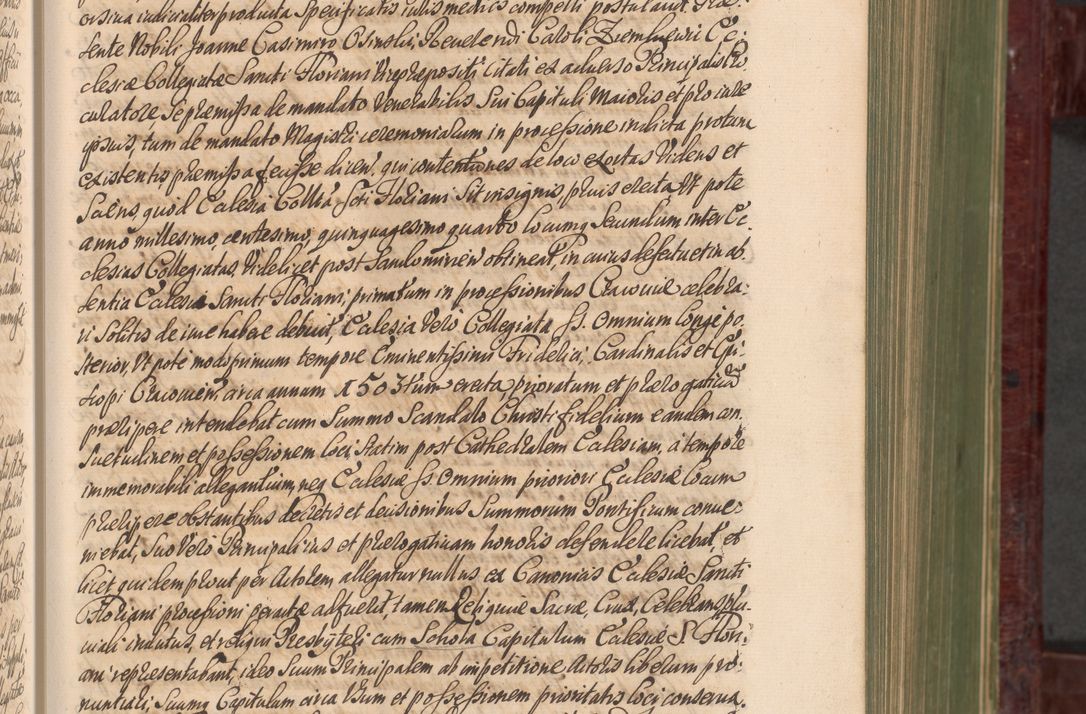 orsiva iudicialiter producta Specificatis talis medica compelli postulavit Præ:
sente Nobili Joanne Casimiro Osinski, Reverendi Caroli Ziemlnicii Ec:
clesiæ Collegiatæ Sancti Floriani Vicepræpositi Citati ex adverso Principalis Pro
curatore Se præmissa de mandato Venerabilis Sui Capituli Maioris et pro iure
ipsius, tum de mandato Magistri ceremoniarum in processione indicta protunc
existentis præmissa fecisse dicen, qui contentiones de loco exortas Videns et
Sciens, quod Ecclesia Colltâ Scti Floriani Sit insignis prius erecta Vt pote
anno millesimo, centesimo, quinquagesimo quarto locumq Secundum inter Ec:
clesias Collegiatas, Videlicet post Sandomirien obtineat, in cuius defectu et in ab
sentia Ecclesia Sancti Floriani, primatum in processionibus Cracoviæ celebra:
ri Solitis de iure habere debuit, Ecclesia Vero Collegiata SS. Omnium longe po:
sterior, Vt pote modo primum tempore Eminentissimi Friderici, Cardinalis et Epi:
scopi Cracovien, circa annum 1503tium erecta, prioratum et prærogativã
præripere intendebat cum Summo Scandalo Christi fidelium eandem con
suetudinem et possessionem loci, Statim post Cathedralem Ecclesiam, a tempore
immemorabili allegantium, neq Ecclesiæ SS Omnium priori Ecclesiæ locum
præripere obstantibus decretis et decisionibus Summorum Pontificum conve:
niebat, Suo Vero Principali ius et prærogativam honoris defendere licebat, et
licet quidem prout per Actorem allegatur nullus ex Canonicis Ecclesiæ Sancti
Floriani processioni peractæ adfuerit, tamen Reliquiæ Sacræ, Crux, Celebrans plu:
viali indutus, et reliqui Presbyteri cum Schola Capitulum Ecclesiæ S. Flori:
ani repræsentabant, ideo Suum Principalem ab impetitione Actoris liberum pro:
nuntiari; Suumq Capitulum circa Vsum et possessionem prioritatis loci conserva,